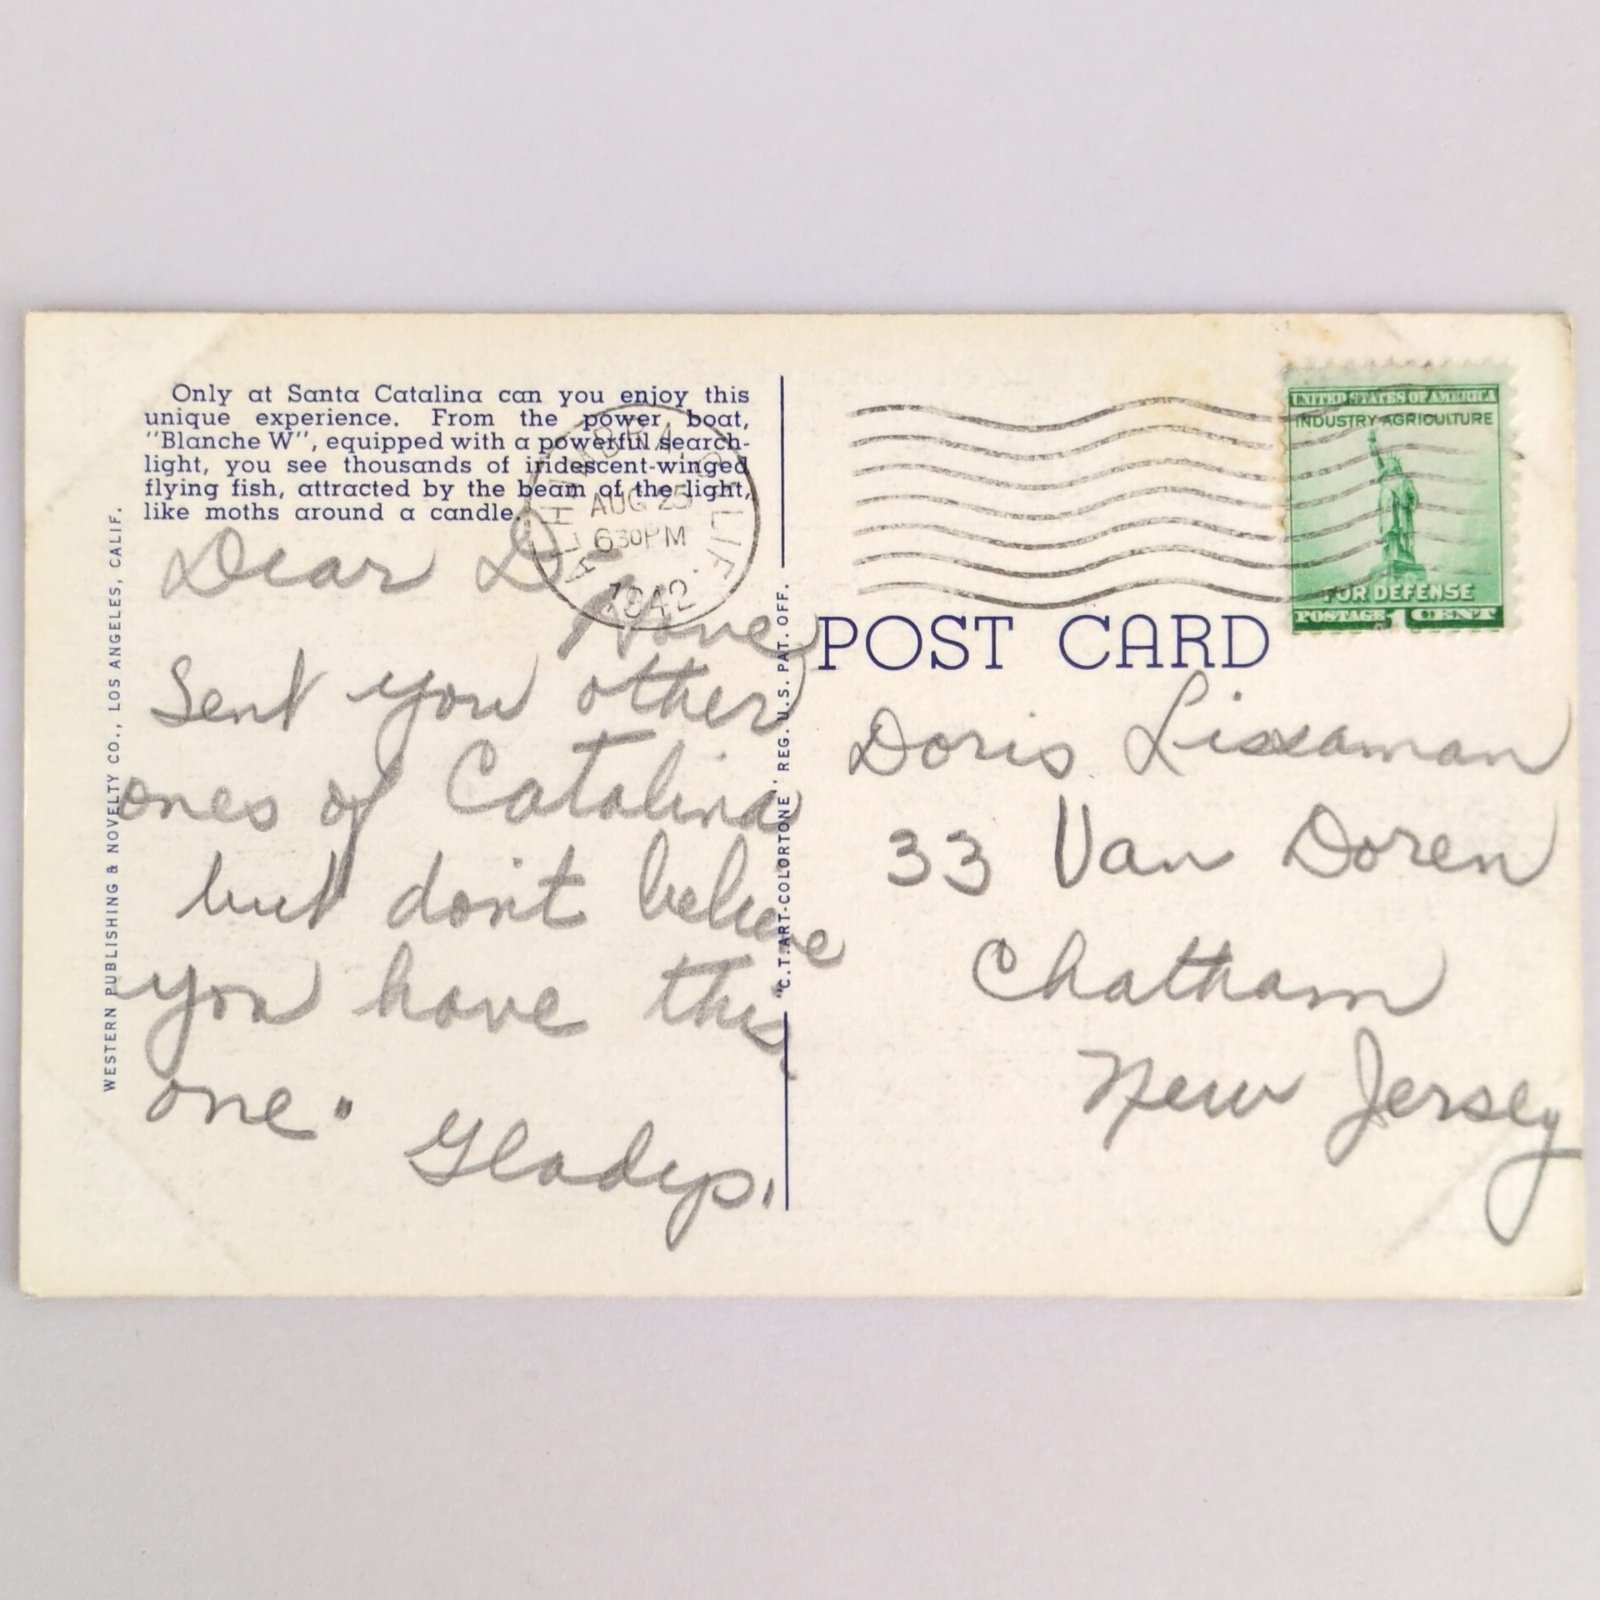 Only at Santa Catalina can you enjoy this
unique experience. From the power boat,
"Blanche W", equipped with a powerful search-
light, you see thousands of iridescent-winged
flying fish, attracted by the beam of the light,
like moths around a candle.
ALHAMBRA CALIF.
AUG 25
630PM
1942
Dear D-
Have
sent you other
ones of Catalina
but don't believe
you have this
one.
Gladys.
WESTERN PUBLISHING & NOVELTY CO., LOS ANGELES, CALIF.
"C.T. ART-COLORTONE" REG. U.S. PAT. OFF.
UNITED STATES OF AMERICA
INDUSTRY AGRICULTURE
FOR DEFENSE
POSTAGE 1 CENT
POST CARD
Doris Lissaman
33 Van Doren
Chatham
New Jersey